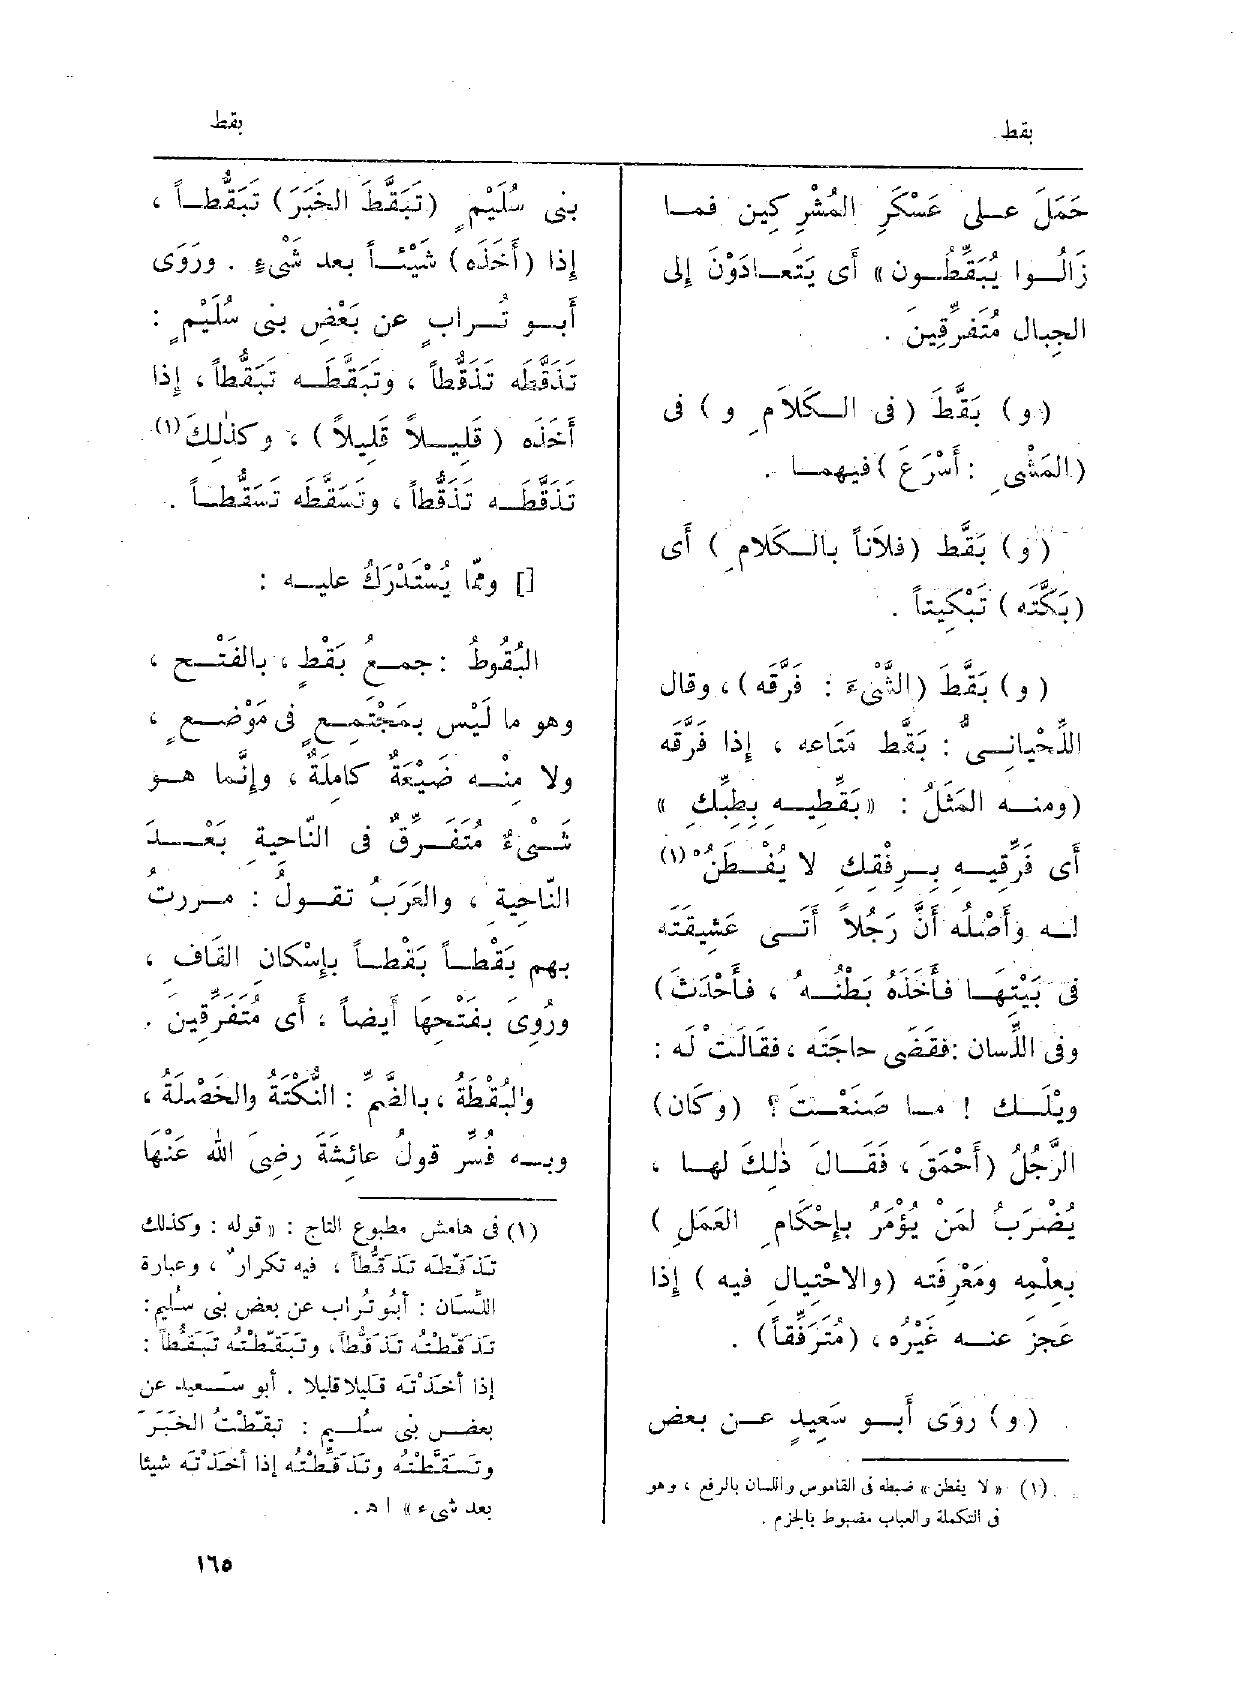 بقط
بقط
حَمَلَ على عَسْكَرِ المُشْرِكين فما
زَالُوا يُبَقِّطُون» أى يَتَعادَوْنَ إلى
الجِبال مُتَفَرِّقِين .
(و) بَقَّطَ (فى الكَلاَمِ و) فى
(المَشْىِ : أَسْرَعَ) فيهما .
(و) بَقَّط (فلاَناً بالكَلامِ) أى
(بَكَّته) تَبْكِيتاً .
(و) بَقَّطَ (الشَّىءَ : فَرَّقه) ، وقال
اللِّحْيانىُّ : بَقَّط مَتَاعه ، إذا فَرَّقه
(ومنه المَثَلُ : «بَقِّطِيه بِطِبِّك»
أى فَرِّقِيه بِرِفْقِكِ لا يُفْطَنُْ (١)
له وأَصْلُه أَنَّ رَجُلاً أَتَى عَشِيقَته
فى بَيْتِها فأَخَذَهُ بَطْنُهُ ، فأَحْدَثَ)
وفى اللِّسان : فقَضَى حاجَتَه ، فقالَتْ لَه :
ويْلَك ! ما صَنَعْت ؟ (وكَان)
الرَّجُلُ (أَحْمَقَ ، فَقَال ذٰلِكَ لها ،
يُضْرَبُ لمَن يُؤْمَرُ بإِحْكَامِ العَمَلِ)
بعِلْمِه ومَعْرِفَته (والاحْتِيالِ فيه) إذا
عَجز عنه غَيْرُه ، (مُتَرَفِّقاً) .
(و) روَى أَبو سَعِيدٍ عن بعض
(١) «لا يفطن» ضبطه فى القاموس واللسان بالرفع ، وهو
فى التكملة والعباب مضبوط بالجزم .
بنى سُلَيْمٍ (تَبَقَّطَ الخَبَرَ) تَبَقُّطاً ،
إذا (أَخَذَه) شَيْئاً بعد شَىْءٍ . ورَوَى
أَبو تُرابٍ عن بَعْضِ بنى سُلَيْمٍ :
تَذَقَّطَه تَذَقُّطاً ، وتَبَقَّطَه تَبَقُّطاً ، إذا
أَخَذَه (قَلِيلاً قَلِيلاً) ، وكذٰلكَ (١)
تَذَقَّطَه تَذَقُّطاً ، وتَسَقَّطَه تَسَقُّطاً .
[] وممّا يُسْتَدْرَكُ عليه :
البُقُوطُ : جمعُ بَقْطٍ ، بالفَتْح ،
وهو ما لَيْس بمُجْتَمِعٍ فى مَوْضعٍ ،
ولا منْه ضَيْعَةٌ كامِلَةٌ ، وإنَّما هو
شىءٌ مُتَفَرِّقٌ فى النّاحية بَعْدَ
النّاحِيةِ ، والعَرَبُ تقولُ : مررتُ
بهم بَقْطاً بَقْطاً بإِسْكان القَافِ ،
ورُوِىَ بفَتْحِهَا أيضاً ، أى مُتَفَرِّقينَ .
والبُقْطَةُ ، بالضَّمِّ : النُّكْتَةُ والخَصْلَةُ ،
وبه فُسِّرَ قولُ عائشَةَ رضِىَ الله عَنْهَا
(١) فى هامش مطبوع التاج : «قوله : وكذلك
تذقّطه تذقُّطاً ، فيه تكرارٌ ، وعبارة
اللسان : أبو تُراب عن بعض بنى سُليم :
تذقّطْتُه تذقُّطاً ، وتبقّطتُه تبقُّطاً :
إذا أخذْته قليلا قليلا . أبو سعيد عن
بعض بنى سُليم : تبقّطتُ الخَبَرَ
وتسقَّطْتُه وتذقَّطْتُه إذا أخذْته شيئا
بعد شىء» ا ه .
١٦٥